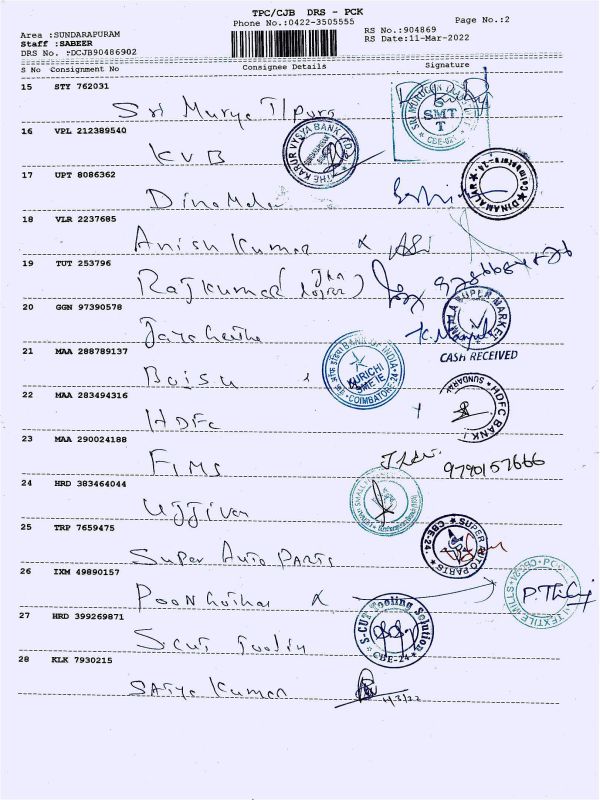 TPC/CJB DRS - PCK
Phone No.:0422-3505555
Page No.:2
Area :SUNDARAPURAM
RS No.:904869
Staff :SABEER
RS Date:11-Mar-2022
DRS No. :DCJB90486902
S No Consignment No Consignee Details Signature
15 STY 762031
Sri Muruga T/pura
SMT
T
16 VPL 212389540
KVB
THE KARUR VYSYA BANK LTD
17 UPT 8086362
DINAMALAR Coimbatore-24
18 VLR 2237685
Anish Kumar
19 TUT 253796
Rajkumar
20 GGN 97390578
SUPER MARKET
CASH RECEIVED
21 MAA 288789137
BANK OF INDIA
KURICHI
SME IE
COIMBATORE-24
22 MAA 283494316
HDFC
HDFC BANK
SUNDARA
23 MAA 290024188
FIMS
9790157666
24 HRD 383464044
Ujjivan
25 TRP 7659475
Super Auto Parts
SUPER AUTO PARTS CBE-24
26 IXM 49890157
TEXTILE MILLS
27 HRD 399269871
S cut Toolin
S-CUT Tooling Solution
CBE-24
28 KLK 7930215
Satya Kumar